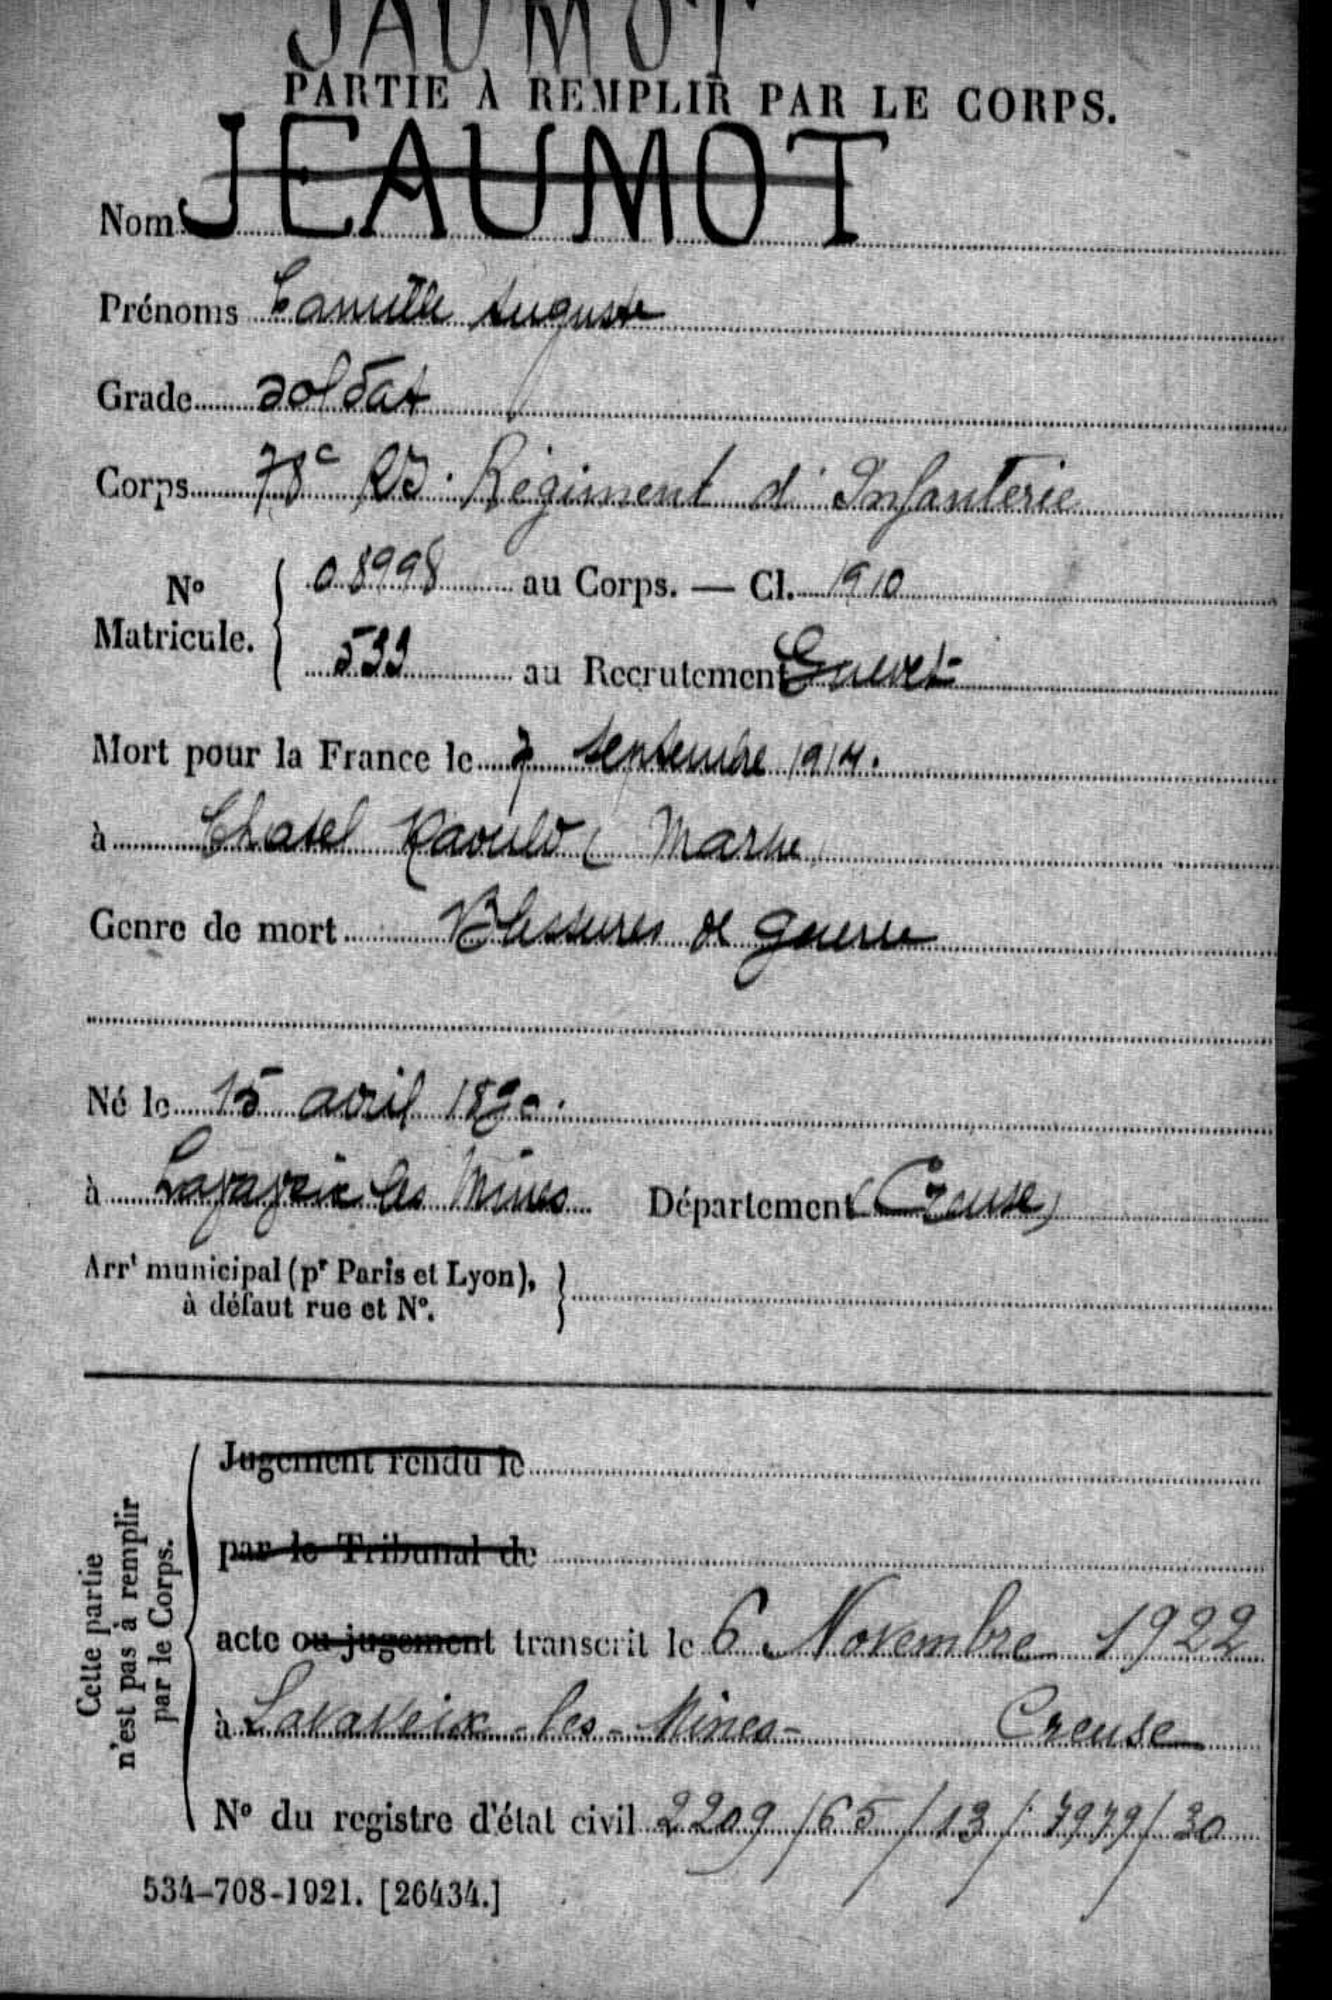 JAUMOT
PARTIE À REMPLIR PAR LE CORPS.
Nom JEAUMOT
Prénoms Camille Auguste
Grade soldat
Corps 78e RI. Régiment d'Infanterie
No Matricule. 08998 au Corps. — Cl. 1910
533 au Recrutement Guéret
Mort pour la France le 7 septembre 1914.
à Chatel Raould (Marne)
Genre de mort Blessures de guerre
Né le 15 avril 1890.
à Lavaveix les Mines Département (Creuse)
Arrt municipal (pr Paris et Lyon),
à défaut rue et No.
Cette partie
n'est pas à remplir
par le Corps.
Jugement rendu le
par le Tribunal de
acte ou jugement transcrit le 6 Novembre 1922
à Lavaveix-les-Mines- Creuse
No du registre d'état civil 2209/65/13/7979/30
534-708-1921. [26434.]